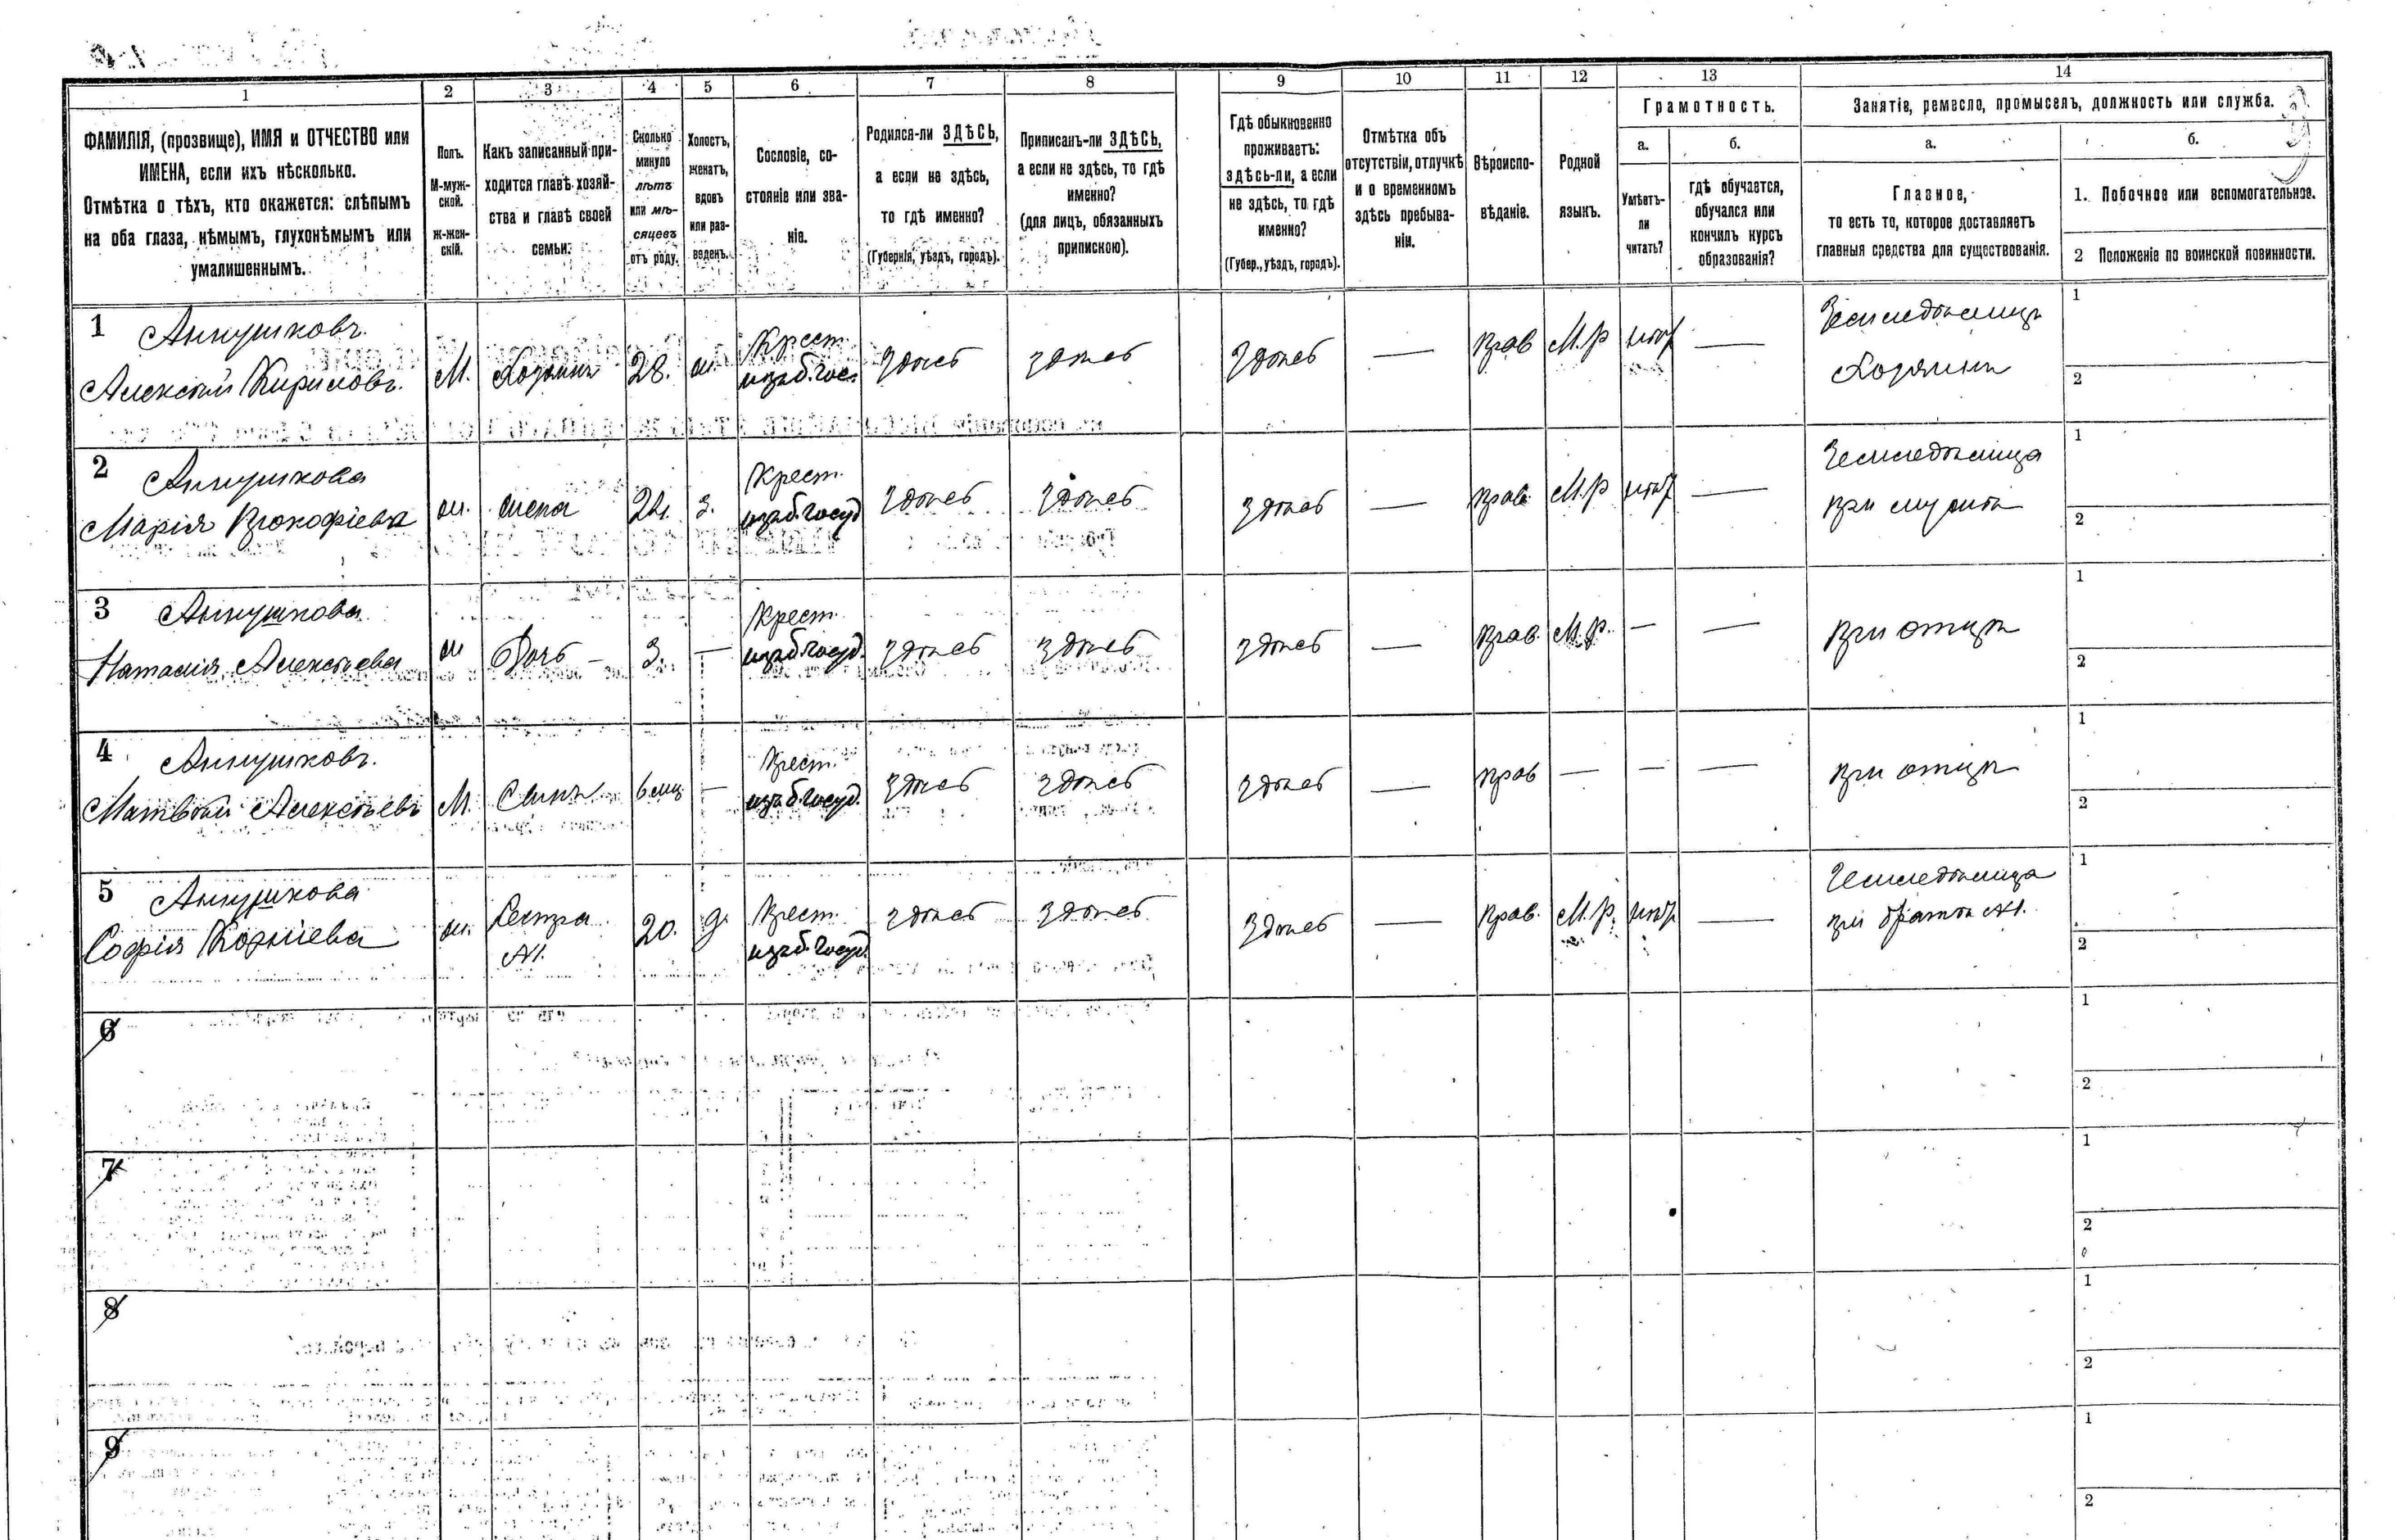 1 2 3 4 5 6 7 8 9 10 11 12 13 14
ФАМИЛІЯ, (прозвище), ИМЯ и ОТЧЕСТВО или
ИМЕНА, если ихъ нѣсколько.
Отмѣтка о тѣхъ, кто окажется: слѣпымъ
на оба глаза, нѣмымъ, глухонѣмымъ или
умалишеннымъ.
Полъ.
М-муж-
ской.
ж-жен-
скій.
Какъ записанный при-
ходится главѣ хозяй-
ства и главѣ своей
семьи.
Сколько
минуло
лѣтъ
или мѣ-
сяцевъ
отъ роду.
Холостъ,
женатъ,
вдовъ
или раз-
веденъ.
Сословіе, со-
стояніе или зва-
ніе.
Родился-ли ЗДѢСЬ,
а если не здѣсь,
то гдѣ именно?
(Губернія, уѣздъ, городъ).
Приписанъ-ли ЗДѢСЬ,
а если не здѣсь, то гдѣ
именно?
(для лицъ, обязанныхъ
припискою).
Гдѣ обыкновенно
проживаетъ:
здѣсь-ли, а если
не здѣсь, то гдѣ
именно?
(Губер., уѣздъ, городъ).
Отмѣтка объ
отсутствіи, отлучкѣ
и о временномъ
здѣсь пребыва-
ніи.
Вѣроиспо-
вѣданіе.
Родной
языкъ.
Грамотность.
а.
Умѣетъ-
ли
читать?
б.
гдѣ обучается,
обучался или
кончилъ курсъ
образованія?
Занятіе, ремесло, промыселъ, должность или служба.
а.
Главное,
то есть то, которое доставляетъ
главныя средства для существованія.
б.
1. Побочное или вспомогательное.
2 Положеніе по воинской повинности.
1 Аннушковъ Крест. Земледѣлецъ 1
Алексѣй Кириловъ М. Хозяинъ 28. ж. изъ б. гос. здѣсь здѣсь здѣсь — Прав М.р нѣт — Хозяинъ 2
2 Аннушкова Крест. Земледѣлица 1
Марія Прокофіева ж. жена 24. з. изъ б. госуд здѣсь здѣсь здѣсь — Прав М.р нѣт — при мужѣ 2
3 Аннушкова Крест. 1
Наталия Алексѣева ж Дочь 3. — изъ б. госуд. здѣсь здѣсь здѣсь — Прав. М.р. — — при отцѣ 2
4 Аннушковъ. Крест. 1
Матвѣй Алексѣевъ М. Сынъ 6 мц — изъ б. госуд. здѣсь здѣсь здѣсь — Прав — — — при отцѣ 2
5 Аннушкова Сестра Крест. Земледѣлица 1
Софія Корніева ж. №1. 20. д. изъ б. госуд. здѣсь здѣсь здѣсь — Прав. М.р. нѣт — при братѣ №1. 2
6 1
2
7 1
2
8 1
2
9 1
2